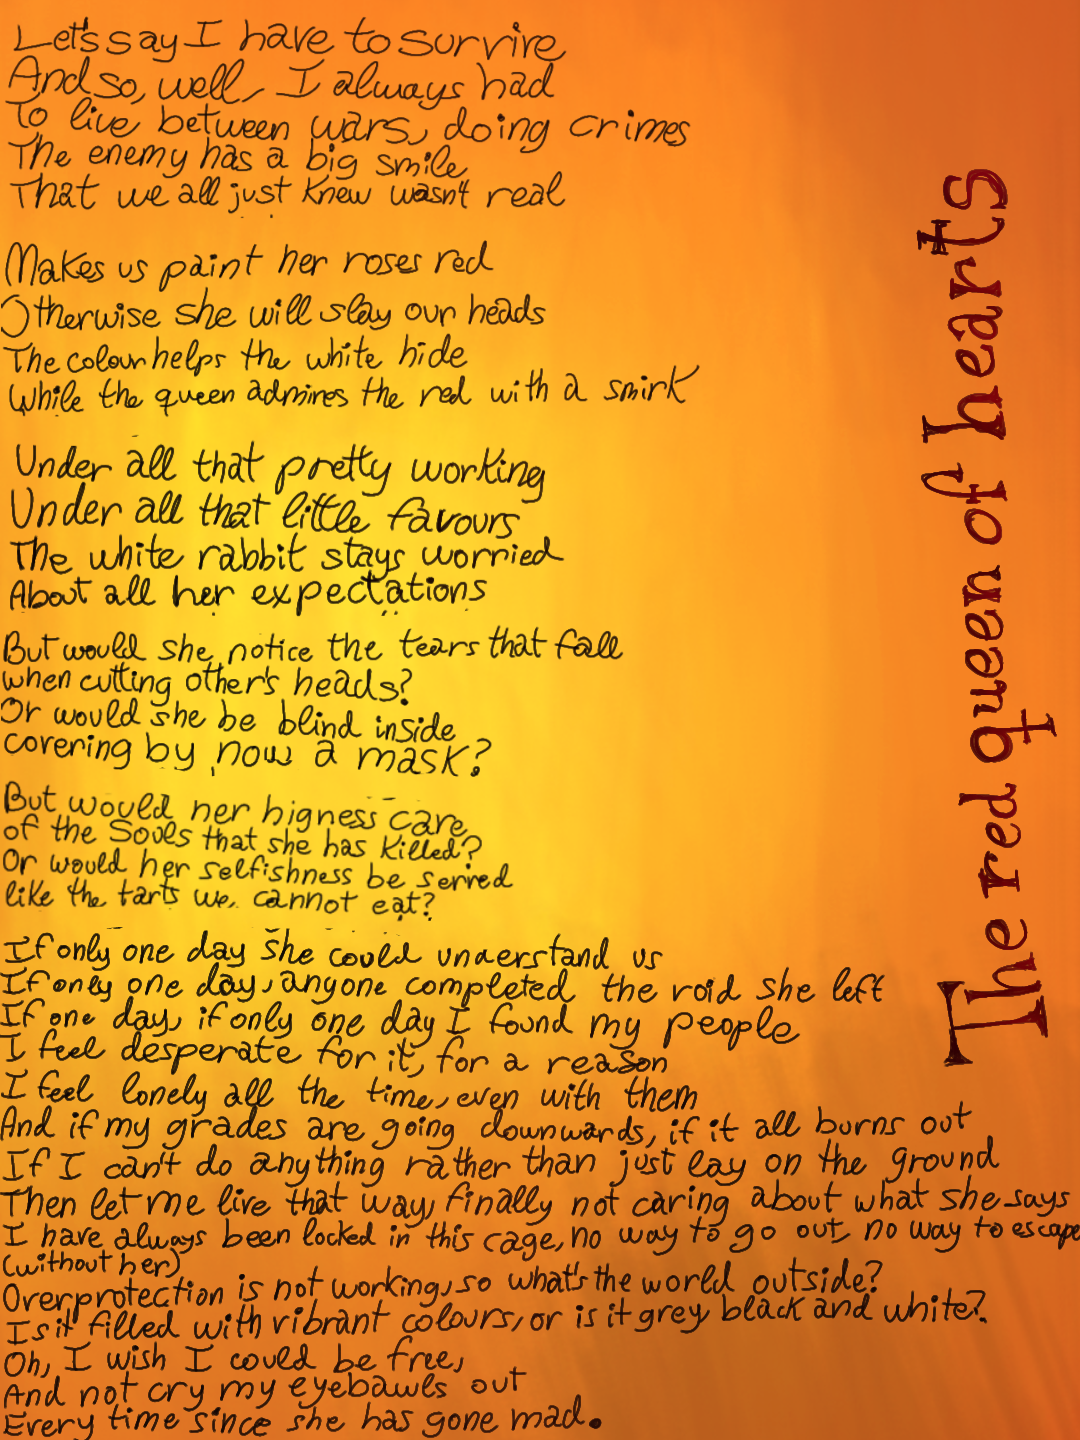 Let's say I have to survive
And so, well, I always had
To live between wars, doing crimes
The enemy has a big smile
That we all just knew wasn't real
Makes us paint her roses red
Otherwise she will slay our heads
The colour helps the white hide
While the queen admires the red with a smirk
Under all that pretty working
Under all that little favours
The white rabbit stays worried
About all her expectations
But would she notice the tears that fall
when cutting other's heads?
Or would she be blind inside
covering by now a mask?
But would her higness care
of the souls that she has killed?
Or would her selfishness be served
like the tarts we cannot eat?
If only one day she could understand us
If only one day, anyone completed the roid she left
If one day, if only one day I found my people
I feel desperate for it, for a reason
I feel lonely all the time, even with them
And if my grades are going downwards, if it all burns out
If I can't do anything rather than just lay on the ground
Then let me live that way, finally not caring about what she says
I have always been locked in this cage, no way to go out, no way to escape
(without her)
Overprotection is not working, so what's the world outside?
Is it filled with vibrant colours, or is it grey, black and white?
Oh, I wish I could be free,
And not cry my eyebawls out
Every time since she has gone mad.
The red queen of hearts